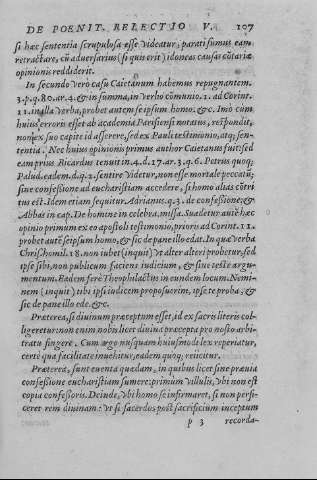 DE POENIT. RELECTIO V. 107
si hæc sententia scrupulosa esse videatur, paratissimus eam
retractare, cū aduersarius (si quis erit) idoneas causas cōtariæ
opinionis reddiderit.
In secundo verò casu Caietanum habemus repugnantem.
3. p. q. 80. ar. 4. & in summa, in verbo cōmunio. 1. ad Corint.
11. in illa verba, probet autem seipsum homo. &c. Imò cum
huius erroris esset ab academia Parisiensi notatus, respondit,
non ex suo capite id asserere, sed ex Pauli testimonio, atq; sen-
tentia. Nec huius opinionis primus author Caietanus fuit: sed
eam prius Ricardus tenuit in. 4. d. 17. ar. 3. q. 6. Petrus quoq;
Palud. eadem. d. q. 2. sentire videtur, non esse mortale peccatū,
sine confessione ad eucharistiam accedere, si homo aliàs cōtri
tus est. Idem etiam sequitur. Adrianus. q. 3. de confessione; &
Abbas in cap. De homine in celebra. missa. Suadetur autē hæc
opinio primum ex eo apostoli testimonio, prioris ad Corint. 11.
probet autē seipsum homo, & sic de pane illo edat. In quæ verba
Chrisost. homil. 18. non iubet (inquit) vt alter alteri probetur, sed
ipse sibi, non publicum faciens iudicium, & sine teste argu-
mentum. Eadem ferè Theophilactus in eundem locum. Nemi-
nem (inquit) tibi ipsi iudicem proposuerim, ipse te proba, &
sic de pane illo ede. &c.
Præterea, si diuinum præceptum esset, id ex sacris literis col-
ligeretur: non enim nobis licet diuina præcepta pro nostro arbi-
tratu fingere. Cum ergo nusquam huiusmodi lex reperiatur,
certè qua facilitate inuehitur, eadem quoq; reiicitur.
Præterea, sunt euenta quædam, in quibus licet sine præuia
confessione eucharistiam sumere: primum villulis, vbi non est
copia confessoris. Deinde, vbi homo se infirmaret, si non perfi-
ceret rem diuinam: vt si sacerdos post sacrificium inceptum
p 3 recorda-